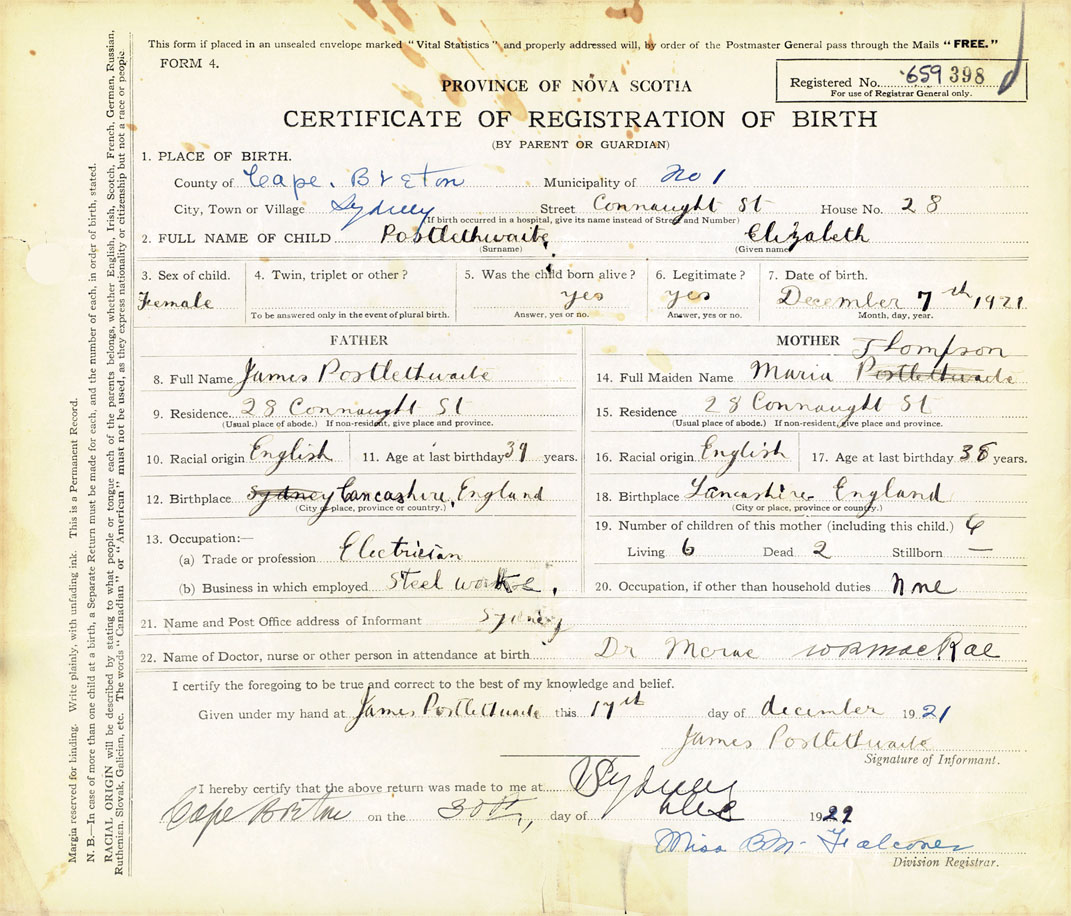 This form if placed in an unsealed envelope marked "Vital Statistics" and properly addressed will, by order of the Postmaster General pass through the Mails "FREE."
FORM 4.
Registered No. 659 398
For use of Registrar General only.
PROVINCE OF NOVA SCOTIA
CERTIFICATE OF REGISTRATION OF BIRTH
(BY PARENT OR GUARDIAN)
1. PLACE OF BIRTH.
County of Cape. Breton Municipality of No 1
City, Town or Village Sydney Street Connaught St House No. 28
(If birth occurred in a hospital, give its name instead of Street and Number)
2. FULL NAME OF CHILD Postlethwaite Elizabeth
(Surname) (Given name)
3. Sex of child. 4. Twin, triplet or other? 5. Was the child born alive? 6. Legitimate? 7. Date of birth.
Female yes yes December 7th 1921
To be answered only in the event of plural birth. Answer, yes or no. Answer, yes or no. Month, day, year.
FATHER
8. Full Name James Postlethwaite
9. Residence 28 Connaught St
(Usual place of abode.) If non-resident, give place and province.
10. Racial origin English 11. Age at last birthday 39 years.
12. Birthplace Sydney Lancashire, England
(City or place, province or country.)
13. Occupation:—
(a) Trade or profession Electrician
(b) Business in which employed Steel
MOTHER
Thompson
14. Full Maiden Name Maria Postlethwaite
15. Residence 28 Connaught St
(Usual place of abode.) If non-resident, give place and province.
16. Racial origin English 17. Age at last birthday 38 years.
18. Birthplace Lancashire England
(City or place, province or country.)
19. Number of children of this mother (including this child.) 6
Living 6 Dead 2 Stillborn —
20. Occupation, if other than household duties None
21. Name and Post Office address of Informant Sydney
22. Name of Doctor, nurse or other person in attendance at birth Dr Mcrae MacRae
I certify the foregoing to be true and correct to the best of my knowledge and belief.
Given under my hand at James Postlethwaite this 17th day of december 1921
James Postlethwaite
Signature of Informant.
I hereby certify that the above return was made to me at Sydney
Cape Breton on the 30th, day of Dec 1921
Miss B.M. Falconer
Division Registrar.
Margin reserved for binding. Write plainly, with unfading ink. This is a Permanent Record.
N. B.—In case of more than one child at a birth, a Separate Return must be made for each, and the number of each, in order of birth, stated.
RACIAL ORIGIN will be described by stating to what people or tongue each of the parents belongs, whether English, Irish, Scotch, French, German, Russian,
Ruthenian, Slovak, Galician, etc. The words "Canadian" or "American" must not be used, as they express nationality or citizenship but not a race or people.